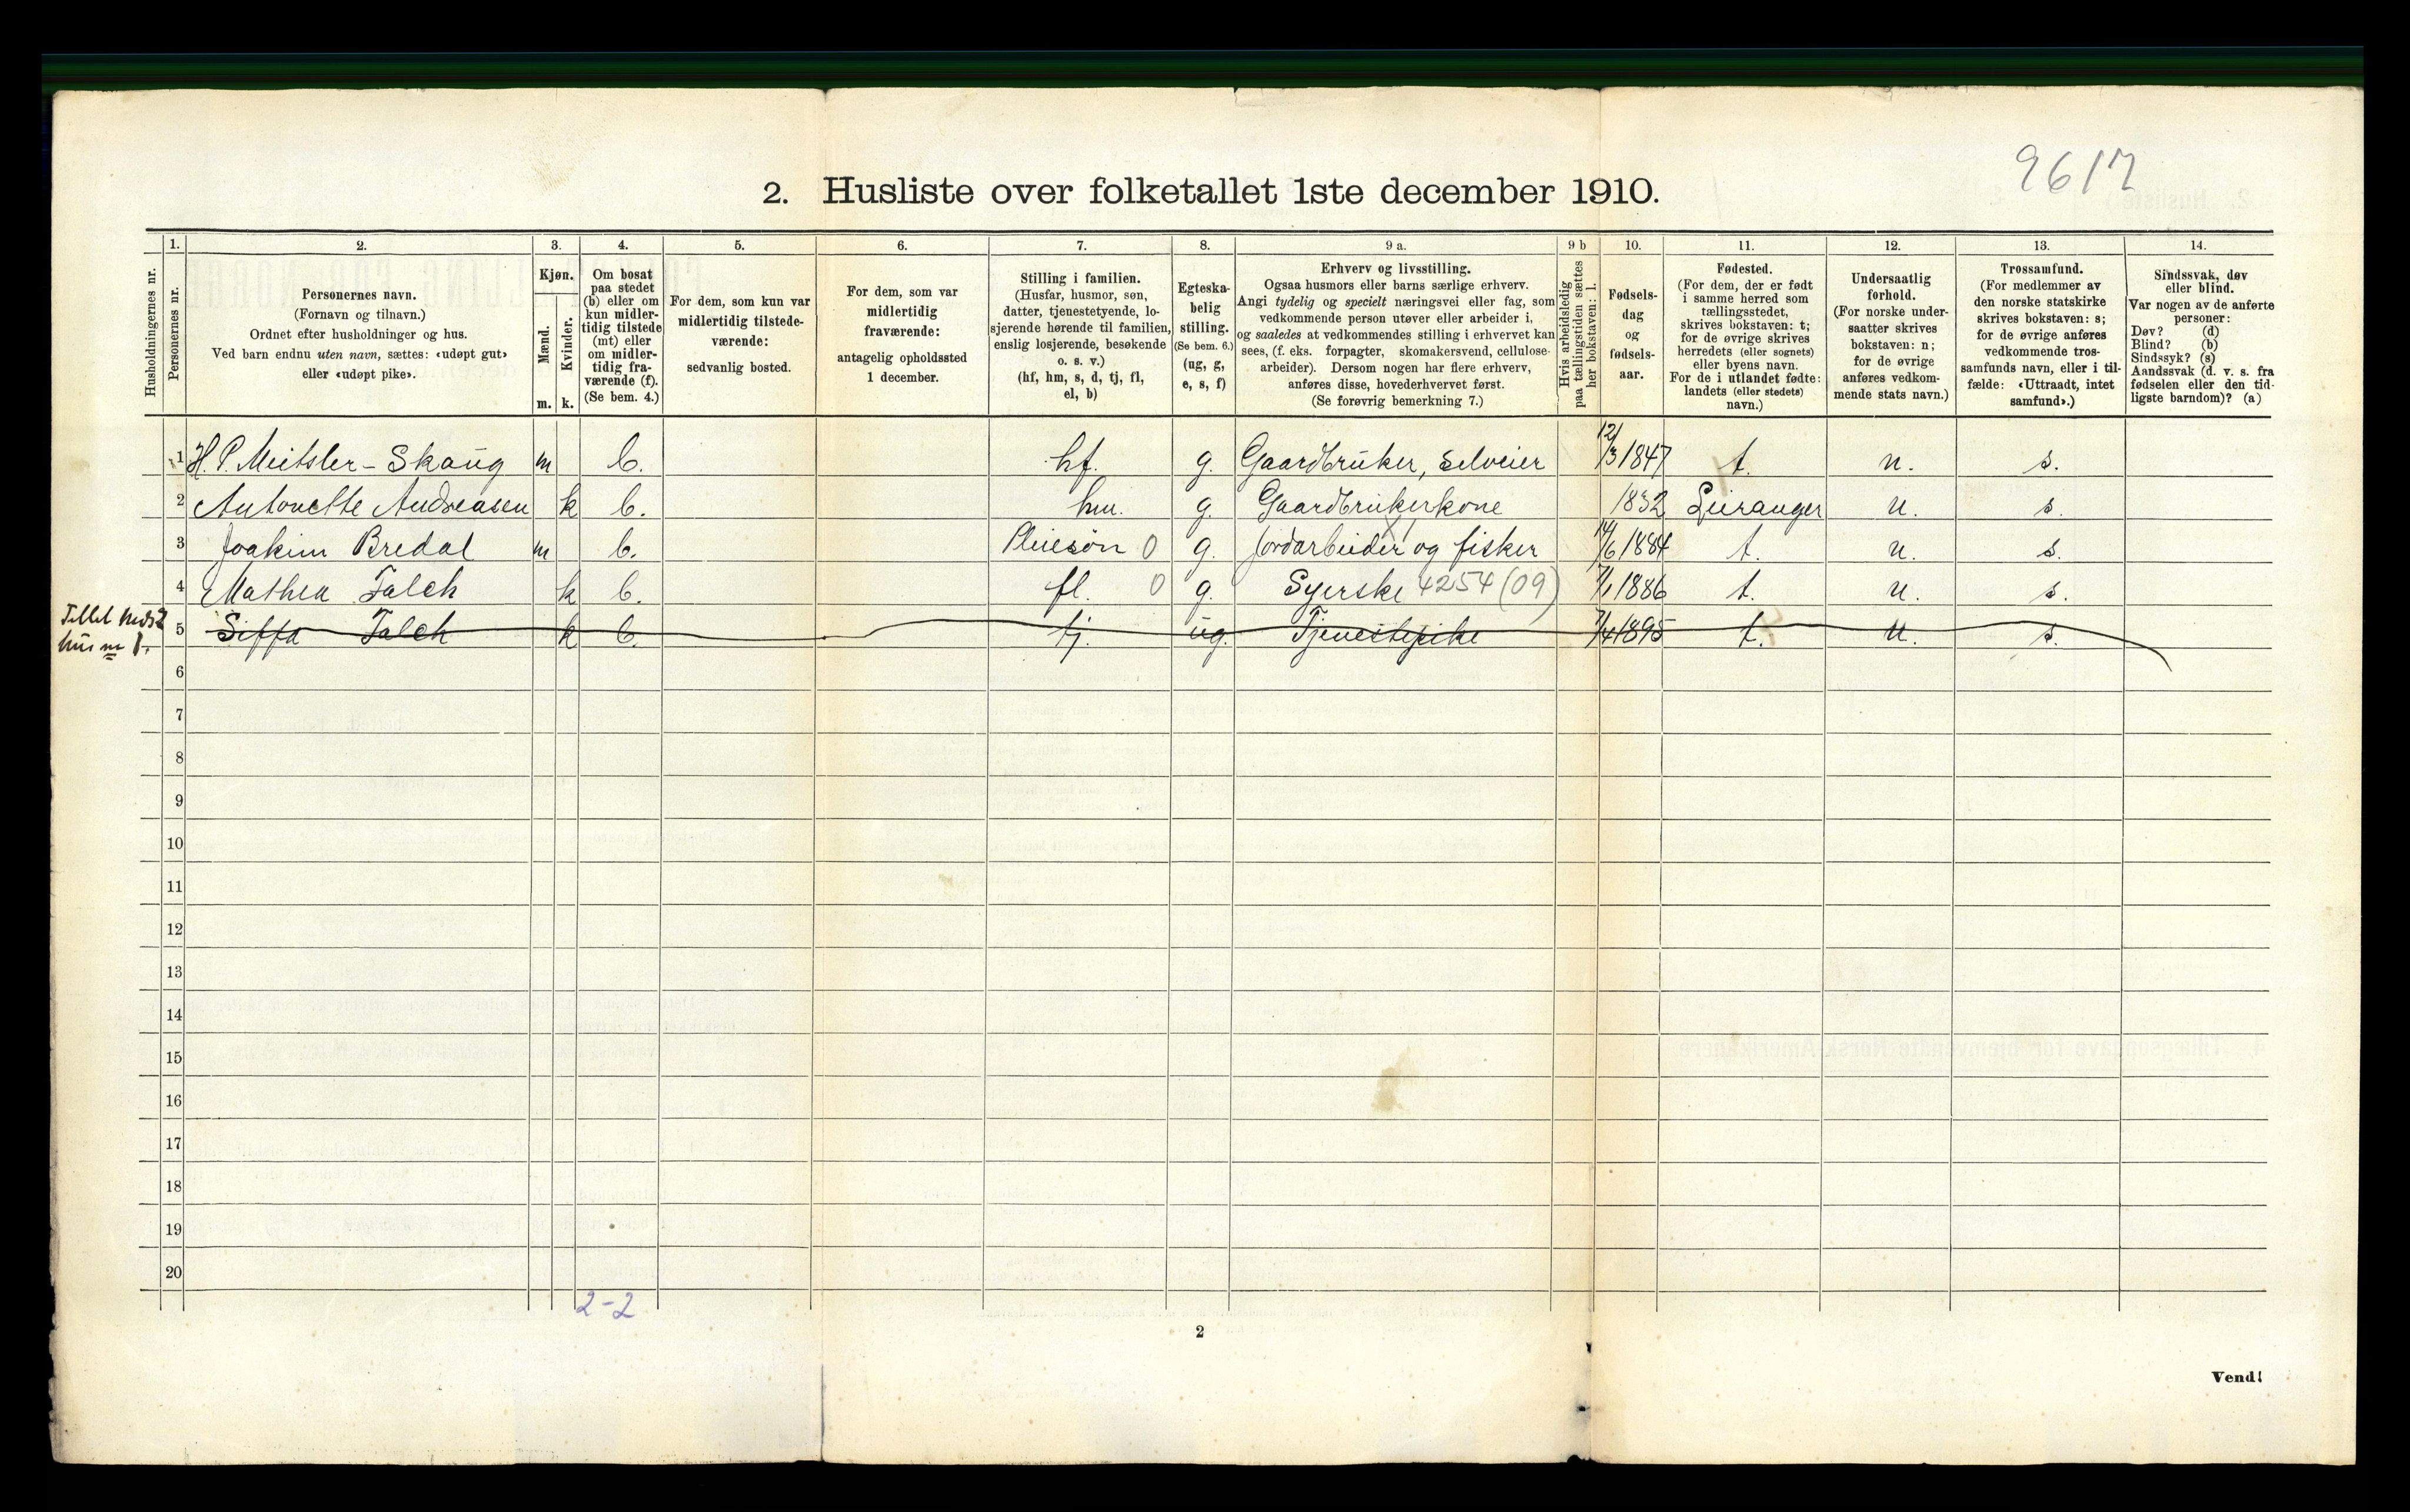 9617
2. Husliste over folketallet 1ste december 1910.
Husholdningernes nr.
1.
Personernes nr.
2.
Personernes navn.
(Fornavn og tilnavn.)
Ordnet efter husholdninger og hus.
Ved barn endnu uten navn, sættes: «udøpt gut»
eller «udøpt pike».
3.
Kjøn.
Mænd.
Kvinder.
m. k.
4.
Om bosat
paa stedet
(b) eller om
kun midler-
tidig tilstede
(mt) eller
om midler-
tidig fra-
værende (f).
(Se bem. 4.)
5.
For dem, som kun var
midlertidig tilstede-
værende:
sedvanlig bosted.
6.
For dem, som var
midlertidig
fraværende:
antagelig opholdssted
1 december.
7.
Stilling i familien.
(Husfar, husmor, søn,
datter, tjenestetyende, lo-
sjerende hørende til familien,
enslig losjerende, besøkende
o. s. v.)
(hf, hm, s, d, tj, fl,
el, b)
8.
Egteska-
belig
stilling.
(Se bem. 6.)
(ug, g,
e, s, f)
9 a.
Erhverv og livsstilling.
Ogsaa husmors eller barns særlige erhverv.
Angi tydelig og specielt næringsvei eller fag, som
vedkommende person utøver eller arbeider i,
og saaledes at vedkommendes stilling i erhvervet kan
sees, (f. eks. forpagter, skomakersvend, cellulose-
arbeider). Dersom nogen har flere erhverv,
anføres disse, hovederhvervet først.
(Se forøvrig bemerkning 7.)
9 b
Hvis arbeidsledig
paa tællingstiden sættes
her bokstaven: l.
10.
Fødsels-
dag
og
fødsels-
aar.
11.
Fødested.
(For dem, der er født
i samme herred som
tællingsstedet,
skrives bokstaven: t;
for de øvrige skrives
herredets (eller sognets)
eller byens navn.
For de i utlandet fødte:
landets (eller stedets)
navn.)
12.
Undersaatlig
forhold.
(For norske under-
saatter skrives
bokstaven: n;
for de øvrige
anføres vedkom-
mende stats navn.)
13.
Trossamfund.
(For medlemmer av
den norske statskirke
skrives bokstaven: s;
for de øvrige anføres
vedkommende tros-
samfunds navn, eller i til-
fælde: «Uttraadt, intet
samfund».)
14.
Sindssvak, døv
eller blind.
Var nogen av de anførte
personer:
Døv? (d)
Blind? (b)
Sindssyk? (s)
Aandssvak (d. v. s. fra
fødselen eller den tid-
ligste barndom)? (a)
1 H. P. Meitsler-Skaug m b. hf. g. Gaardbruker, selveier 12/3 1847 t. n. s.
2 Antonette Andreasen k b. hm. g. Gaardbrukerkone 1832 Leiranger n. s.
3 Joakim Bredal m b. Pleiesøn 0 g. Jordarbeider og fisker 14/6 1884 t. n. s.
4 Mathea Falch k b. fl. 0 g. Syerske 4254 (09) 7/1 1886 t. n. s.
hus nr 1.
5 Siffa Falch k b. tj. ug. Tjenestepike 7/4 1895 t. n. s.
6
7
8
9
10
11
12
13
14
15
16
17
18
19
20
2-2
2
Vend!